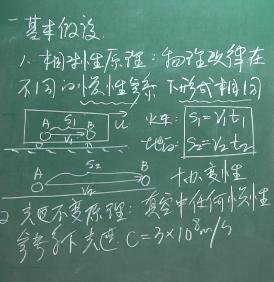 一 基本假设.
1. 相对性原理：物理规律在
不同的惯性参考系下形式相同
A S₁ B
V₁ u
火车: S₁=V₁t₁
地面: S₂=V₂t₂
S₂
A B
V₂
协变性
2 光速不变原理：真空中任何惯性
参考系下光速 C=3×10⁸m/s